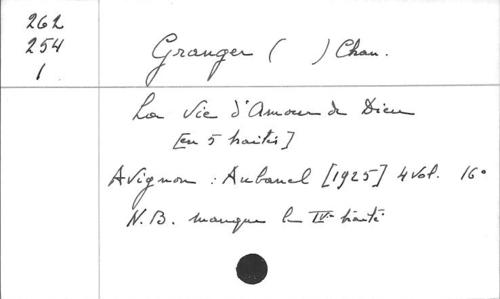 262
254
1
Granger ( ) Chan.
La Vie d'Amour de Dieu
[en 5 traités]
Avignon : Aubanel [1925] 4 vol. 16°
N.B. manque le IVe traité